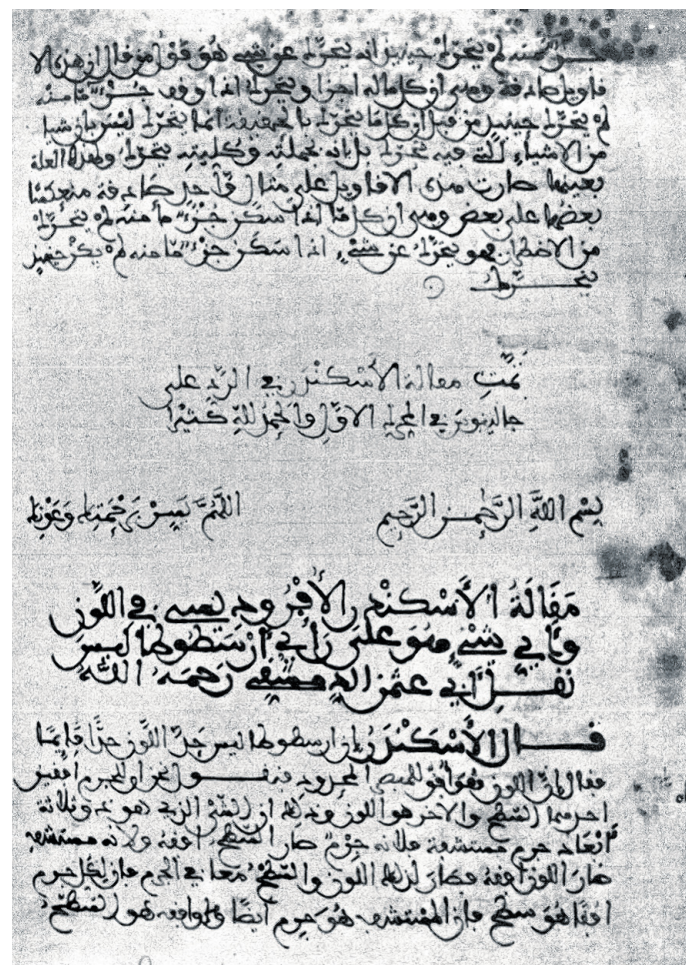 جزء منه لم يتحرك حينئذ انه يتحرك عن شيء هو قول من قال ان هذه الا
قاويل صادقة وهي ان كل ما له اجزا ويتحرك اذا وقف جزء ما منه
لم يتحرك حينئذ من قبل ان كل ما يتحرك بالحقيقة انما يتحرك ليس بان شيا
من الاشياء التي فيه يتحرك بل بانه بجملته وكليته يتحرك وهذه العلة
بعينها صارت هذه الاقاويل على مثال واحد صادقة منعكسا
بعضها على بعض وهي ان كل ما اذا سكن جزء ما منه لم يتحرك
من الاضطرار فهو يتحرك عن شيء اذا سكن جزء ما منه لم يكن حينئذ
يتحرك
تمت مقالة الأسكندر في الرد على
جالينوس في المحرك الاول والحمد لله كثيرا
بسم الله الرحمن الرحيم اللهم يسر برحمتك وعونك
مقالة الأسكندر الأفروديسي في اللون
وأي شيء هو على رأي أرسطوطاليس
نقل أبي عثمن الدمشقي رحمه الله
قال الأسكندر إن ارسطوطاليس حد اللون حدا قايما
فقال إن اللون هو افق المستشف المحدود فنقول نحن ان للجرم افقين
احدهما السطح والآخر هو اللون وذلك ان الشيء الذي هو ذو ثلاثة
أبعاد جرم مستشف فلانه جرم صار السطح افقه ولانه مستشف
صار اللون افقه فصار لذلك اللون والسطح معا في الجرم فان لكل جرم
افقا هو سطح فان المستشف هو جرم أيضا هو السطح